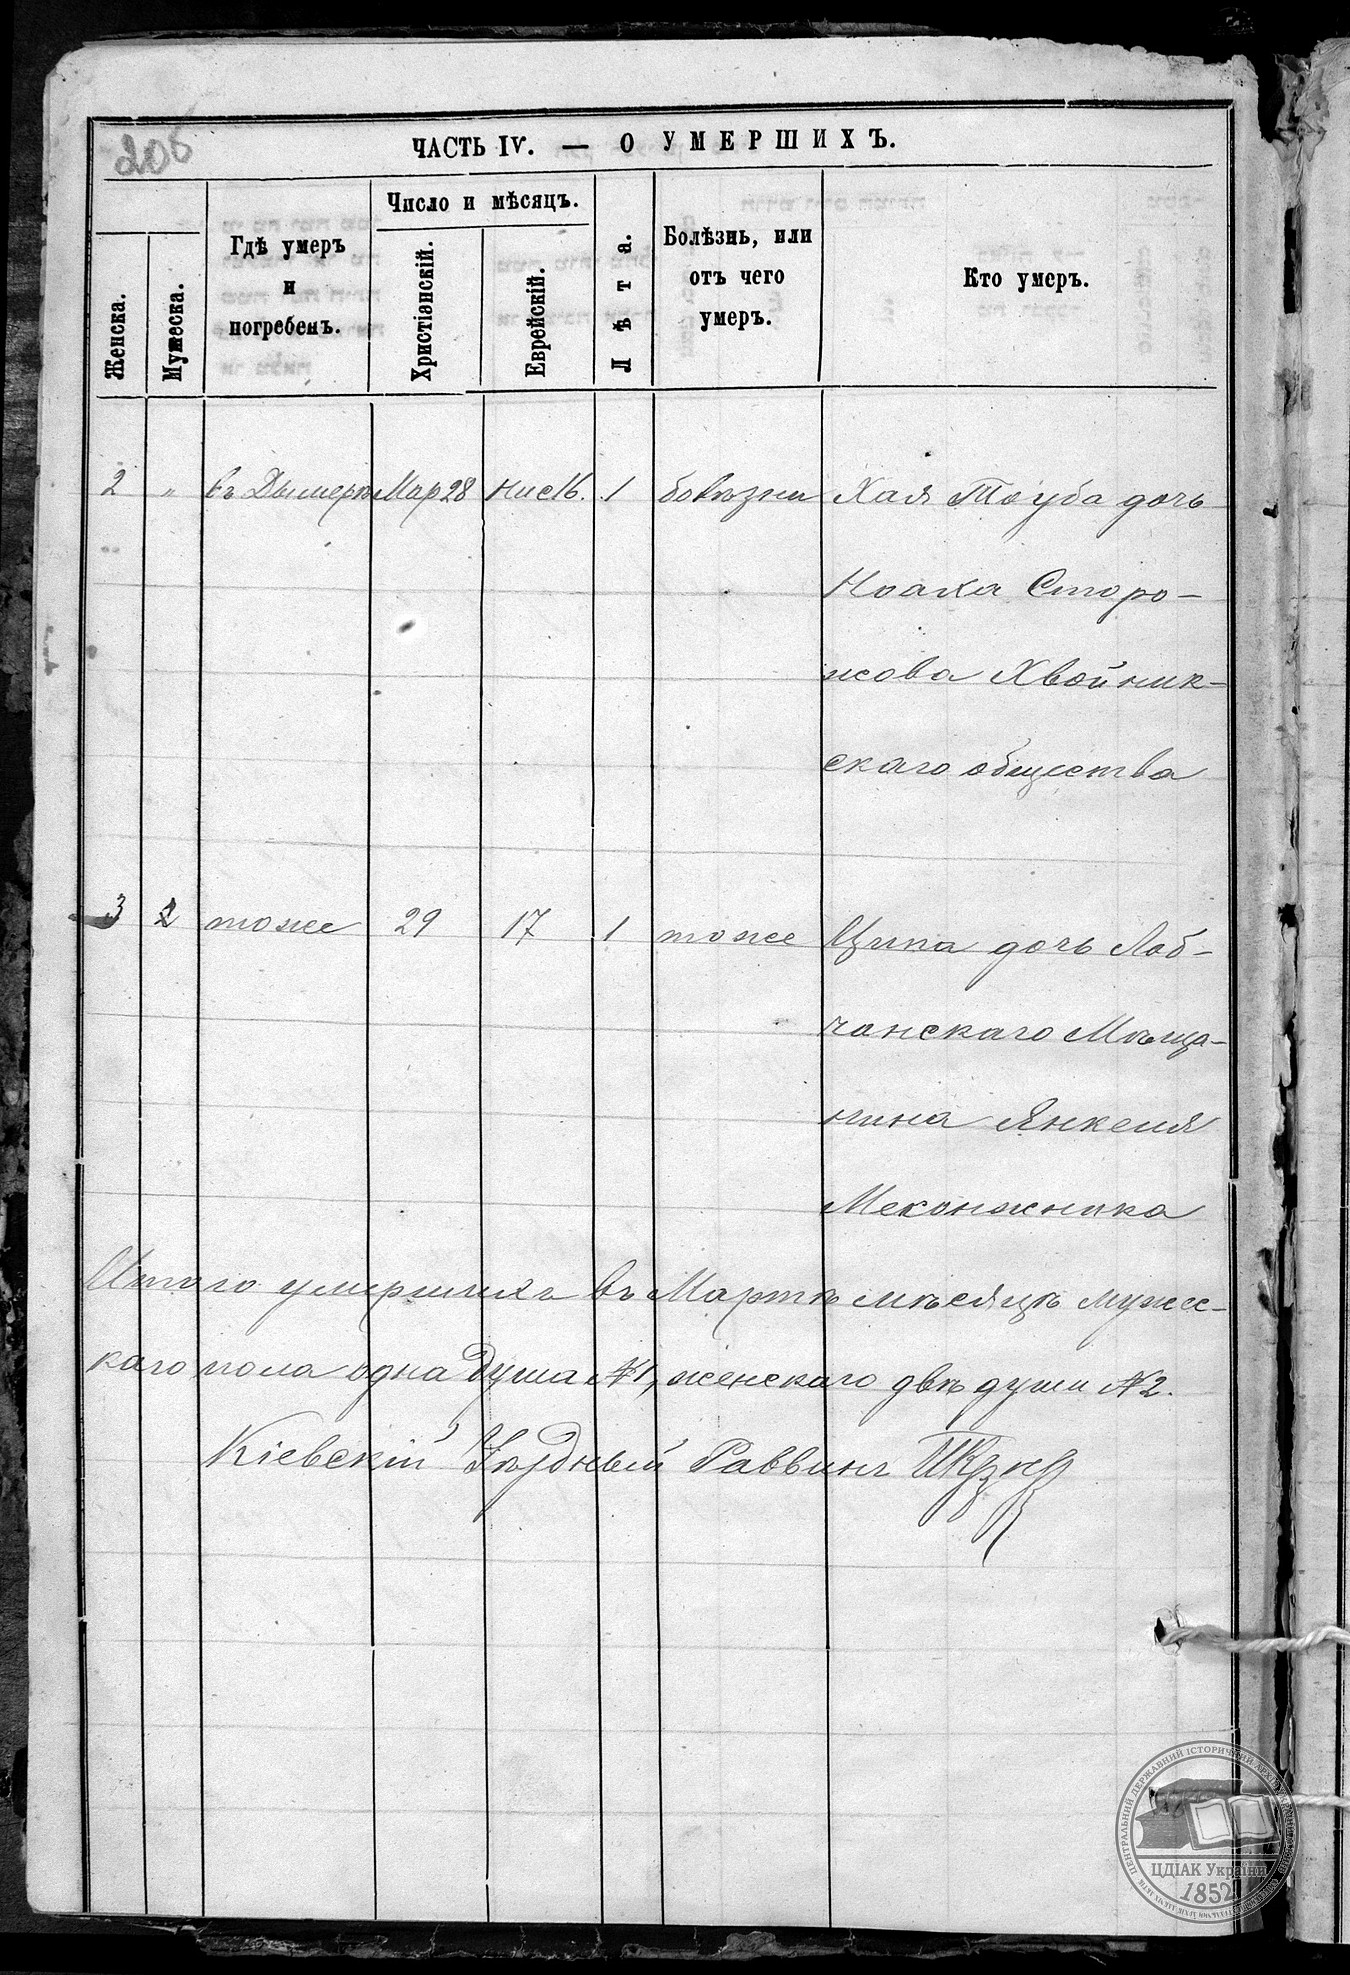 206
ЧАСТЬ IV. — О УМЕРШИХЪ.
Женска.
Мужеска.
Гдѣ умеръ
и
погребенъ.
Число и мѣсяцъ.
Христіанскій.
Еврейскій.
Лѣта.
Болѣзнь, или
отъ чего
умеръ.
Кто умеръ.
2 „ въ Дымерѣ Мар 28 Нис 16. 1 болѣзни Хая Тауба дочь
Ноаха Сторо-
жова Хвойник-
скаго общества
3 2 тоже 29 17 1 тоже Ципа дочь Лоб-
чанскаго Мѣща-
нина Янкеля
Меконжника
Итого умершихъ въ Мартѣ мѣсяцѣ мужес-
каго пола одна душа №1, женскаго двѣ души №2.
Кіевскій Уѣздный Раввинъ
ЦЕНТРАЛЬНИЙ ДЕРЖАВНИЙ ІСТОРИЧНИЙ АРХІВ УКРАЇНИ
ЦДІАК України
1852